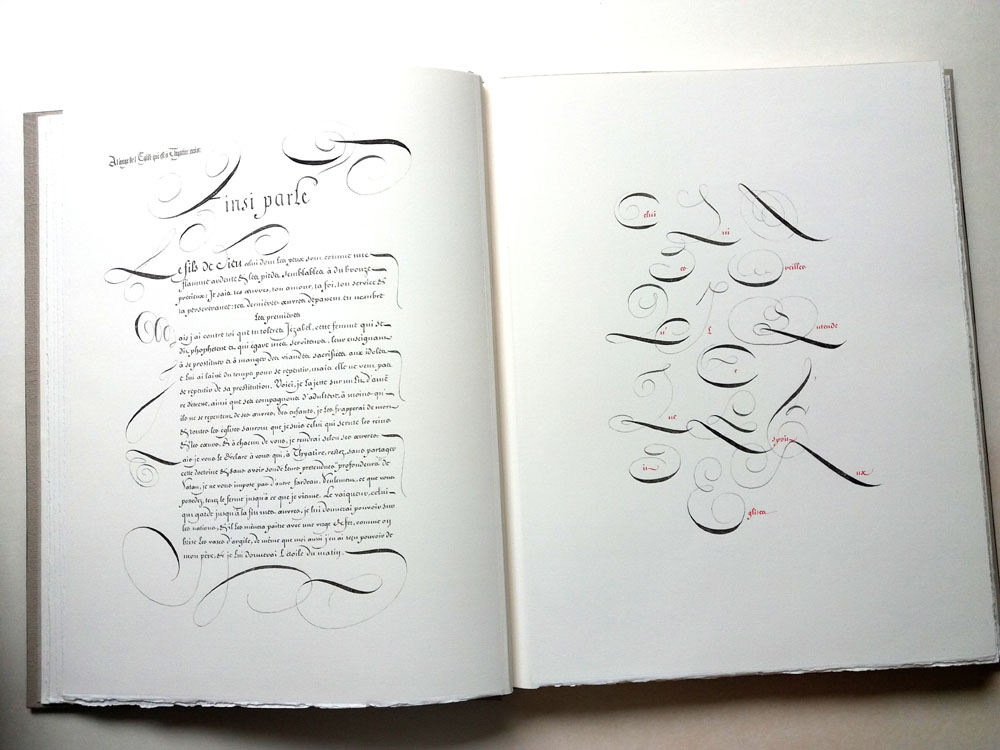 A l'ange de l'Eglise qui est à Thyatire, écris:
Ainsi parle
Le fils de Dieu celui dont les yeux sont comme une
flamme ardente & les pieds semblables à du bronze
précieux: Je sais tes œuvres, ton amour, ta foi, ton service &
ta perseverance: tes dernières œuvres dépassent en nombre
les premières
Mais j'ai contre toi que tu toleres Jézabel, cette femme qui se
dit phophetesse et qui égare mes serviteurs, leur enseignant
à se prostituer et à manger des viandes sacrifiées aux idoles
e lui ai laissé du temps pour se repentir, mais elle ne veut pas
se repentir de sa prostitution. Voici, je la jette sur un lit d'amè
re détresse, ainsi que ses compagnons d'adultère, à moins qu'
ils ne se repentent de ses œuvres. Ses enfants, je les frapperai de mort
& toutes les églises sauront que je suis celui qui scrute les reins
& les cœurs, & à chacun de vous, je rendrai selon ses œuvres
ais je vous le déclare à vous qui, à Thyatire, restez sans partager
cette doctrine & sans avoir sondé leurs prétendues "profondeurs" de
Satan, je ne vous impose pas d'autre fardeau. Seulement, ce que vous
possédez, tenez le ferme jusqu'à ce que je vienne. Le vainqueur, celui
qui garde jusqu'à la fin mes œuvres, je lui donnerai pouvoir sur
les nations, & il les mènera paître avec une verge de fer, comme on
brise les vases d'argile, de même que moi aussi j'en ai reçu pouvoir de
mon père, & je lui donnerai l'étoile du matin.
Celui
qui
a
des
Oreilles
qu'il
Entende
Ce
que
l'Esprit
dit
aux
Eglises